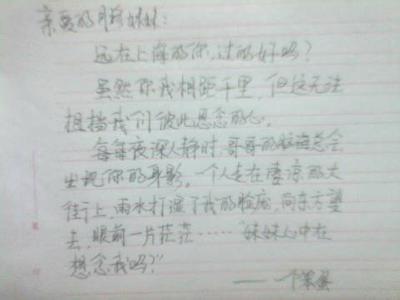 亲爱的胖妹妹：
远在上海的你，过的好吗？
虽然你我相距千里，但这无法
阻挡我们彼此思念的心。
每每夜深人静时，哥哥的脑海总会
出现你的身影。一个人走在凄凉的大
街上，雨水打湿了我的脸庞，向东方望
去，眼前一片茫茫……“妹妹心中在
想念我吗？”
——一个笨蛋